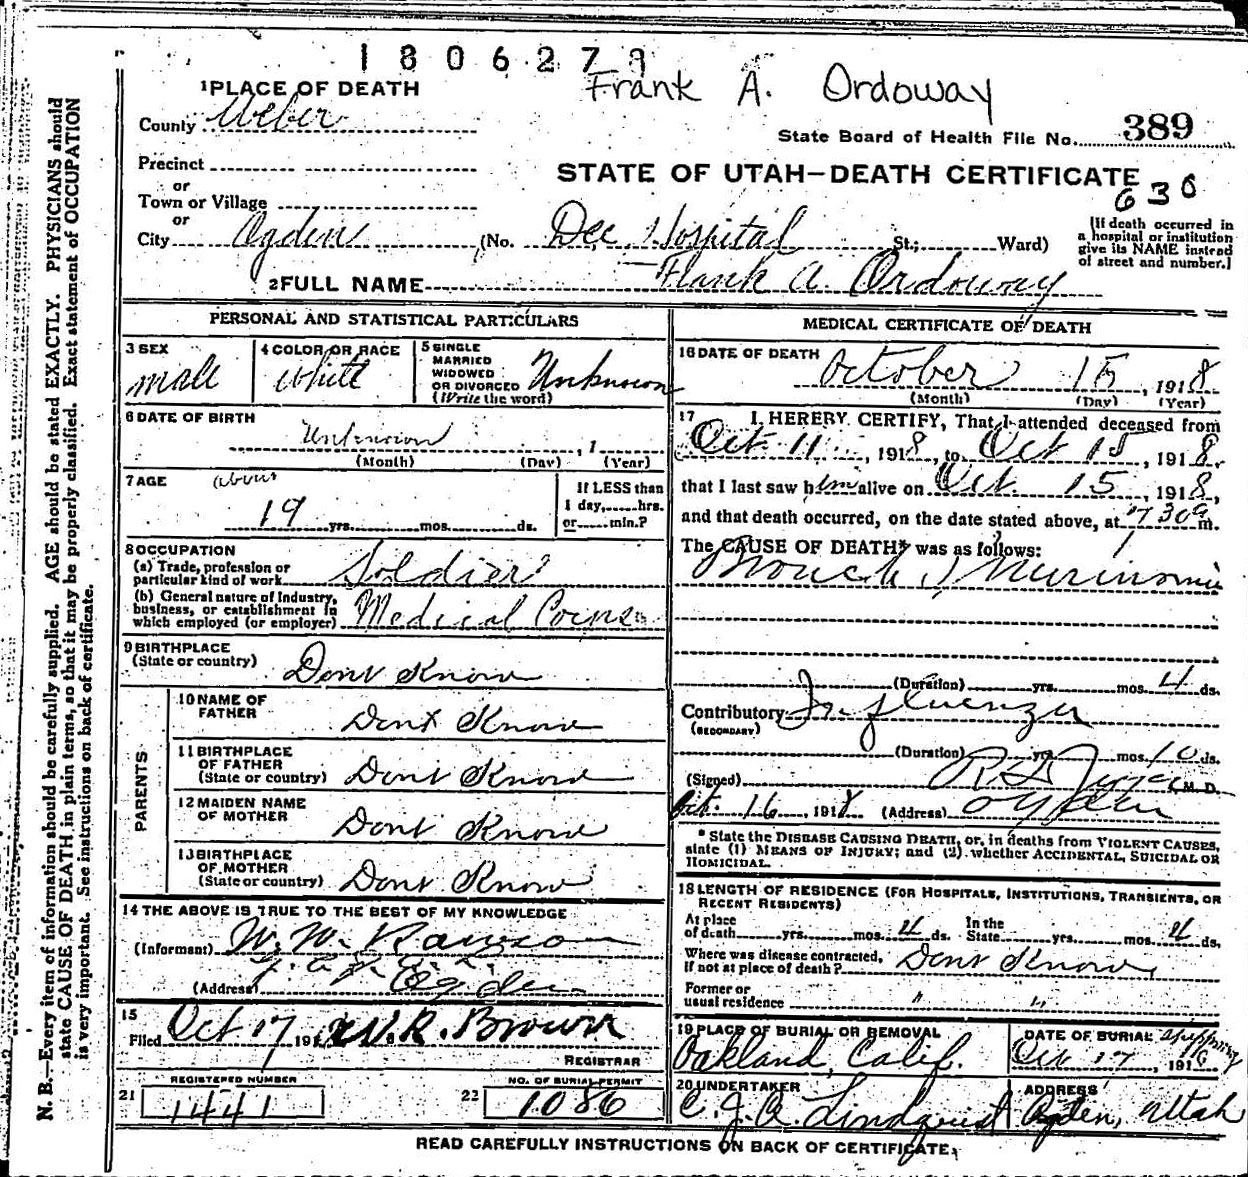 1806279
Frank A. Ordoway
1 PLACE OF DEATH
County Weber
State Board of Health File No. 389
Precinct
STATE OF UTAH—DEATH CERTIFICATE
636
or
Town or Village
or
City Ogden (No. Dee Hospital St.; Ward)
[If death occurred in
a hospital or institution
give its NAME instead
of street and number.]
2 FULL NAME Frank A. Ordoway
PERSONAL AND STATISTICAL PARTICULARS
3 SEX
male
4 COLOR OR RACE
white
5 SINGLE
MARRIED
WIDOWED
OR DIVORCED
(Write the word)
Unknown
6 DATE OF BIRTH
Unknown , 1
(Month) (Day) (Year)
7 AGE about
19 yrs. mos. ds.
If LESS than
1 day, hrs.
or min.?
8 OCCUPATION
(a) Trade, profession or
particular kind of work Soldier
(b) General nature of industry,
business, or establishment in
which employed (or employer) Medical Corps
9 BIRTHPLACE
(State or country) Dont Know
PARENTS
10 NAME OF
FATHER Dont Know
11 BIRTHPLACE
OF FATHER
(State or country) Dont Know
12 MAIDEN NAME
OF MOTHER Dont Know
13 BIRTHPLACE
OF MOTHER
(State or country) Dont Know
14 THE ABOVE IS TRUE TO THE BEST OF MY KNOWLEDGE
(Informant) W. W. Rawson
(Address) Ogden
15
Filed Oct 17 191 W.R. Brown
REGISTRAR
21 REGISTERED NUMBER
1441
22 NO. OF BURIAL PERMIT
1086
MEDICAL CERTIFICATE OF DEATH
16 DATE OF DEATH October 15, 1918
(Month) (Day) (Year)
17 I HERERY CERTIFY, That I attended deceased from
Oct. 11, 1918, to Oct 15, 1918,
that I last saw him alive on Oct. 15, 1918,
and that death occurred, on the date stated above, at 730a m.
The CAUSE OF DEATH* was as follows:
(Duration) yrs. mos. 4 ds.
Contributory Influenza
(SECONDARY)
(Duration) yrs. mos. 10 ds.
(Signed) M. D.
Oct. 16, 1918 (Address) Ogden
* State the DISEASE CAUSING DEATH, or, in deaths from VIOLENT CAUSES,
state (1) MEANS OF INJURY; and (2) whether ACCIDENTAL, SUICIDAL OR
HOMICIDAL.
18 LENGTH OF RESIDENCE (FOR HOSPITALS, INSTITUTIONS, TRANSIENTS, OR
RECENT RESIDENTS)
At place
of death yrs. mos. 4 ds. In the
State yrs. mos. 4 ds.
Where was disease contracted,
if not at place of death? Dont Know
Former or
usual residence " "
19 PLACE OF BURIAL OR REMOVAL
Oakland, Calif.
DATE OF BURIAL Shipping
Oct 17, 191
20 UNDERTAKER
C. J. A. Lindquist
ADDRESS
Ogden, Utah
READ CAREFULLY INSTRUCTIONS ON BACK OF CERTIFICATE.
N. B.—Every item of information should be carefully supplied. AGE should be stated EXACTLY. PHYSICIANS should
state CAUSE OF DEATH in plain terms, so that it may be properly classified. Exact statement of OCCUPATION
is very important. See instructions on back of certificate.